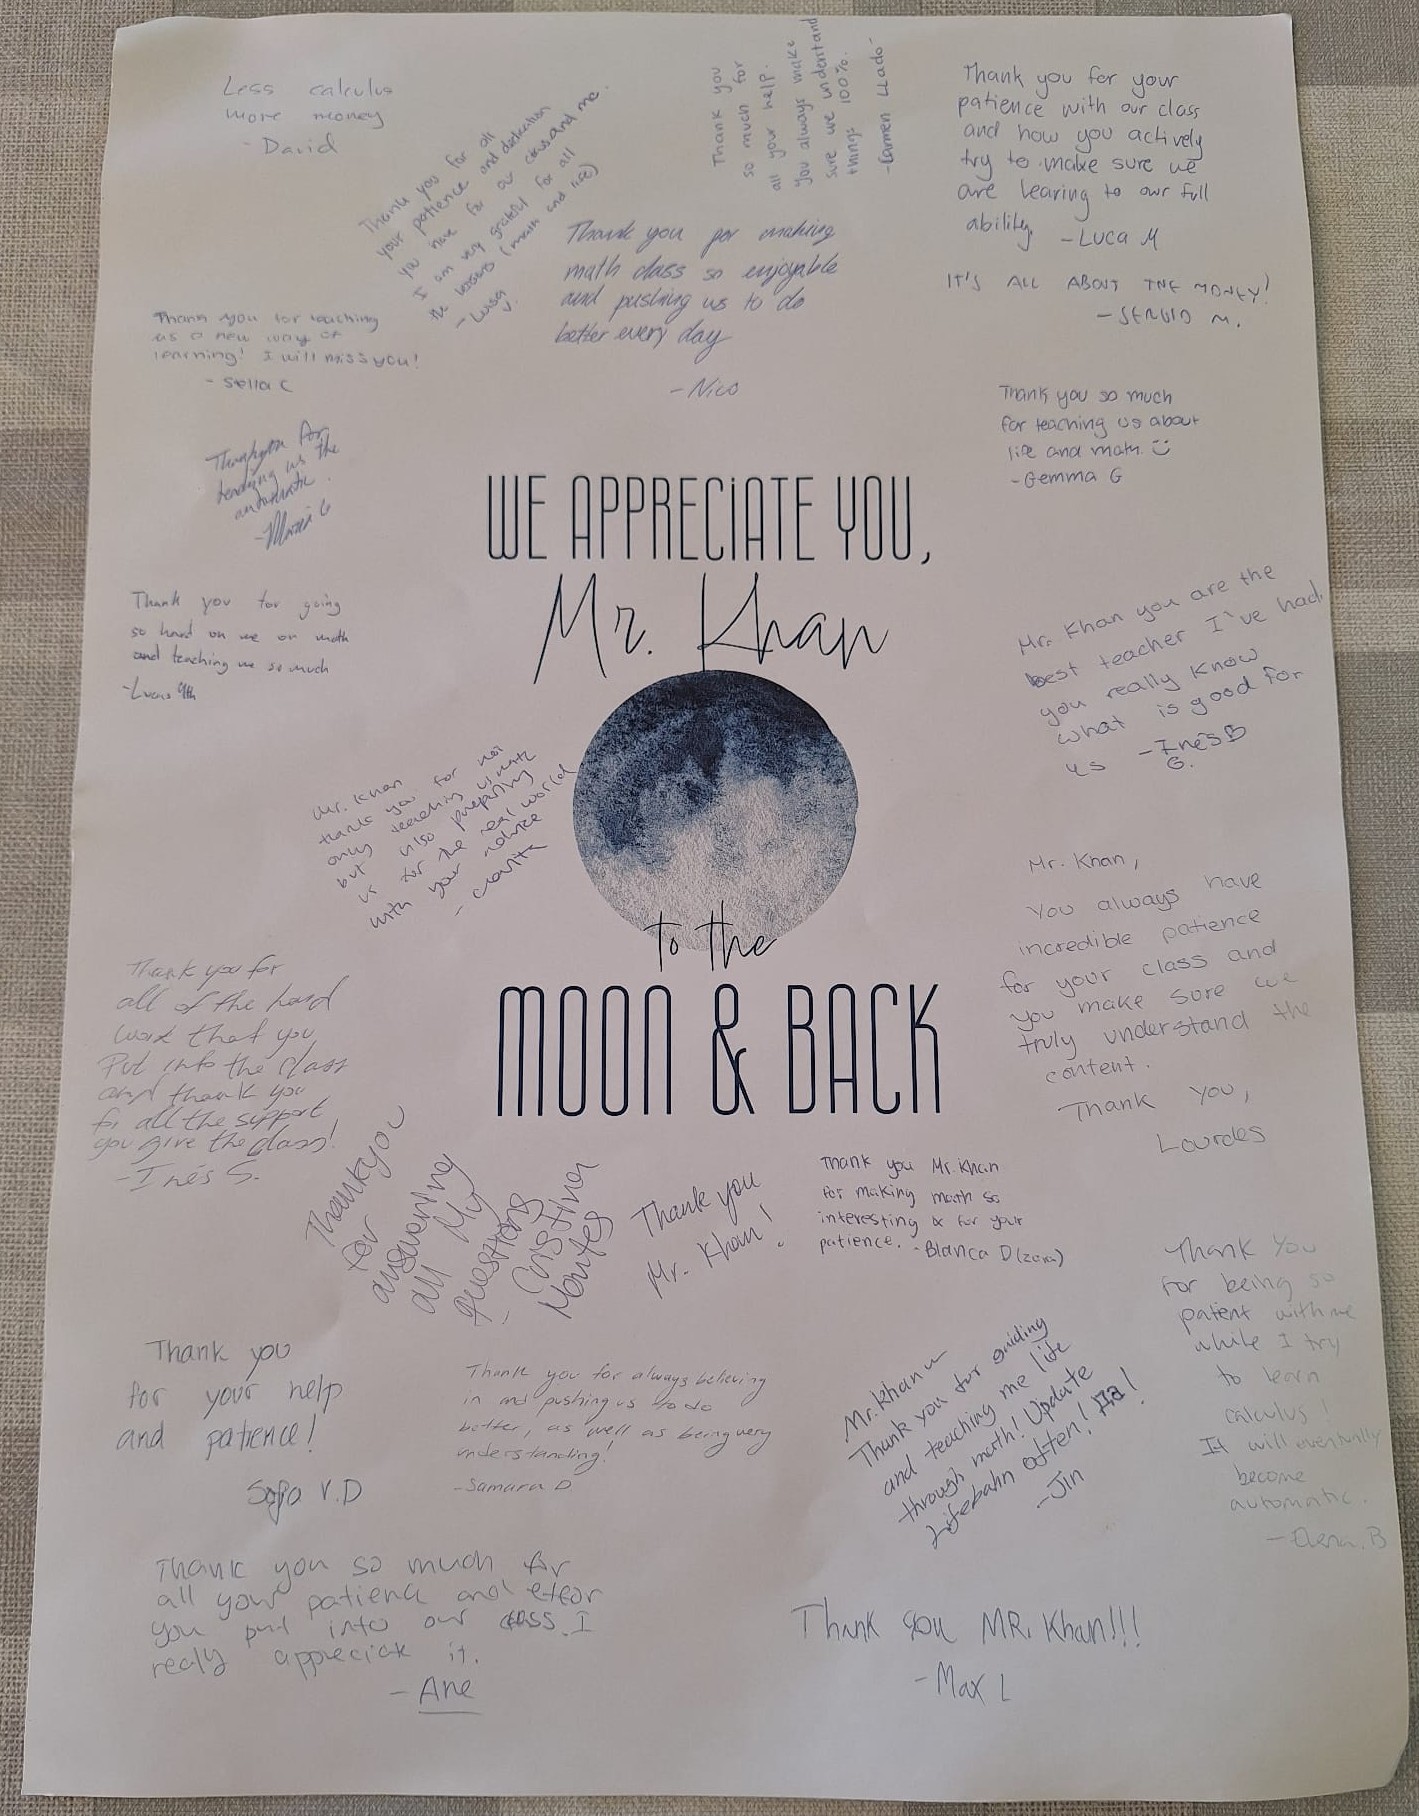 Less calculus
more money
- David
Thank you for all
your patience and dedication
you have for our class and me.
I am very grateful for all
the lessons (math and life)
- Luisa
V.
Thank you
so much for
all your help.
You always make
sure we understand
things 100%.
- Carmen LLado -
Thank you for your
patience with our class
and how you actively
try to make sure we
are learing to our full
ability. - Luca M
IT'S ALL ABOUT THE MONEY!
- SERGIO M.
Thank you for making
math class so enjoyable
and pushing us to do
better every day
- Nico
Thank you for teaching
us a new way of
learning! I will miss you!
- Stella C
Thank you so much
for teaching us about
life and math. :)
- Gemma G
Thankyou for
teaching us the
automatic.
- Maria G
WE APPRECiATE YOU,
Mr. Khan
to the
MOON & BACK
Thank you for going
so hard on me on math
and teaching me so much
- Lucas 9th
Mr. Khan you are the
best teacher I've had,
you really know
what is good for
us - Inés B
G.
Mr. Khan
thank you for not
only teaching us math
but also preparing
us for the real world
with your advice
-
Mr. Khan,
You always have
incredible patience
for your class and
you make sure we
truly understand the
content.
Thank you,
Lourdes
Thank you for
all of the hard
work that you
Put into the class
and thank you
for all the support
you give the class!
- Inés S.
Thankyou
for
answering
all My
questions
- Cristina
Montes
Thank you
Mr. Khan!
Thank you Mr. Khan
for making math so
interesting & for your
patience. - Blanca D (zora)
Thank you
for being so
patient with me
while I try
to learn
calculus!
It will eventually
become
automatic.
- Elena. B
Thank you
for your help
and patience!
Sofia V.D
Thank you for always believing
in and pushing us to do
better, as well as being very
understanding!
- Samara D
Mr. Khan ~
Thank you for guiding
and teaching me life
through math! Update
Lifebahn often! Да!
- Jin
Thank you so much for
all your patience and effor
you put into our class. I
realy appreciate it.
- Ane
Thank you MR. Khan!!!
- Max L